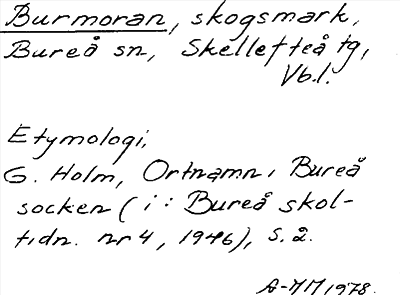 Burmoran, skogsmark,
Bureå sn, Skellefteå tg,
Vb.l.
Etymologi,
G. Holm, Ortnamn i Bureå
socken (i: Bureå skol-
tidn. nr 4, 1946), s. 2.
A-MM 1978.